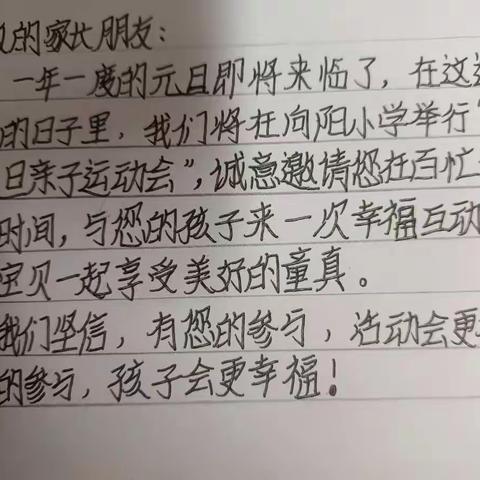 的家长朋友:
一年一度的元旦即将来临了,在这
的日子里,我们将在向阳小学举行“
旦亲子运动会”,诚意邀请您在百忙
时间,与您的孩子来一次幸福互动
宝贝一起享受美好的童真。
我们坚信,有您的参与,活动会更
的参与,孩子会更幸福!